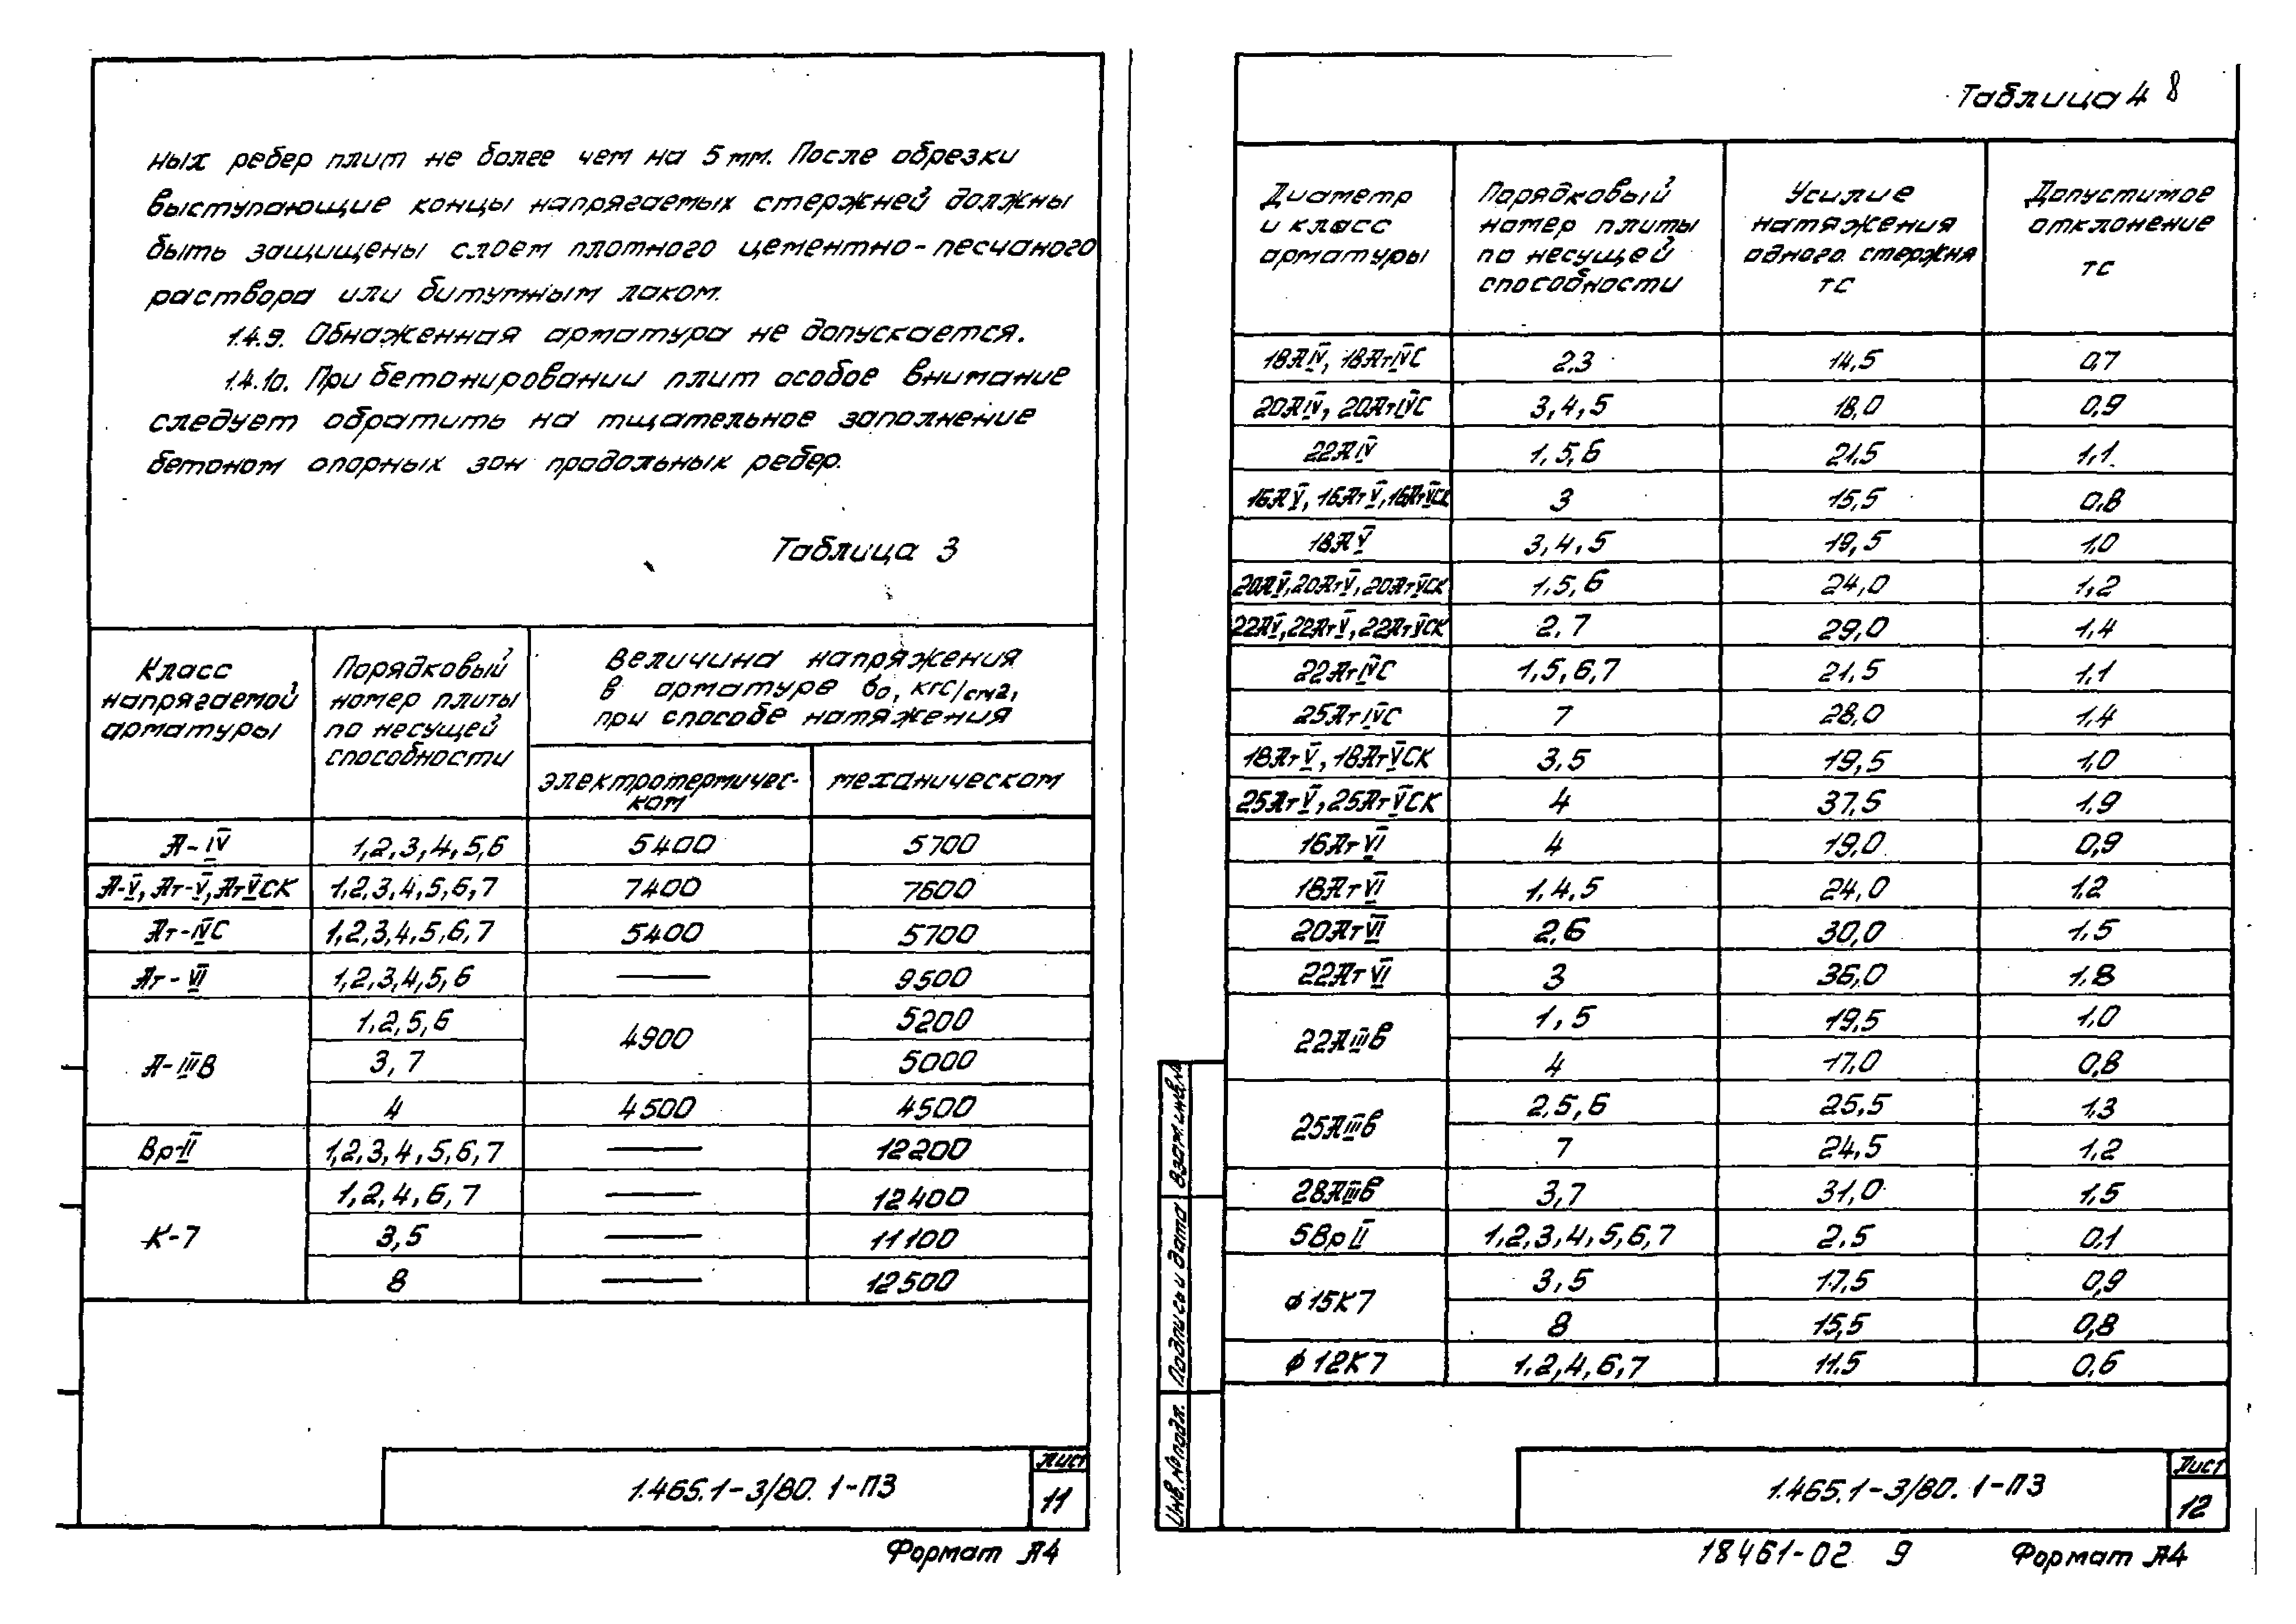 ных ребер плит не более чем на 5 мм. После обрезки
выступающие концы напрягаемых стержней должны
быть защищены слоем плотного цементно-песчаного
раствора или битумным лаком.
1.4.9. Обнаженная арматура не допускается.
1.4.10. При бетонировании плит особое внимание
следует обратить на тщательное заполнение
бетоном опорных зон продольных ребер.
Таблица 3
Класс напрягаемой арматуры
Порядковый номер плиты по несущей способности
Величина напряжения в арматуре σ0, кгс/см2, при способе натяжения
электротермичес-ком
механическом
А-IV 1,2,3,4,5,6 5400 5700
А-V, Ат-V, АтVСК 1,2,3,4,5,6,7 7400 7600
Ат-IVС 1,2,3,4,5,6,7 5400 5700
Ат-VI 1,2,3,4,5,6 — 9500
А-IIIВ 1,2,5,6 4900 5200
3,7 5000
4 4500 4500
Вр-II 1,2,3,4,5,6,7 — 12200
К-7 1,2,4,6,7 — 12400
3,5 — 11100
8 — 12500
1.465.1-3/80. 1-ПЗ
Лист
11
Формат А4
Таблица 4
8
Диаметр и класс арматуры
Порядковый номер плиты по несущей способности
Усилие натяжения одного стержня тс
Допустимое отклонение тс
18АIV, 18АтIVС 2,3 14,5 0,7
20АIV, 20АтIVС 3,4,5 18,0 0,9
22АIV 1,5,6 21,5 1,1
16АV, 16АтV, 16АтVСК 3 15,5 0,8
18АV 3,4,5 19,5 1,0
20АV, 20АтV, 20АтVСК 1,5,6 24,0 1,2
22АV, 22АтV, 22АтVСК 2,7 29,0 1,4
22АтIVС 1,5,6,7 21,5 1,1
25АтIVС 7 28,0 1,4
18АтV, 18АтVСК 3,5 19,5 1,0
25АтV, 25АтVСК 4 37,5 1,9
16АтVI 4 19,0 0,9
18АтVI 1,4,5 24,0 1,2
20АтVI 2,6 30,0 1,5
22АтVI 3 36,0 1,8
22АIIIв 1,5 19,5 1,0
4 17,0 0,8
25АIIIв 2,5,6 25,5 1,3
7 24,5 1,2
28АIIIв 3,7 31,0 1,5
5ВрII 1,2,3,4,5,6,7 2,5 0,1
ϕ15К7 3,5 17,5 0,9
8 15,5 0,8
ϕ12К7 1,2,4,6,7 11,5 0,6
Взам. инв. №
Подпись и дата
Инв. № подл.
1.465.1-3/80. 1-ПЗ
Лист
12
18461-02 9
Формат А4